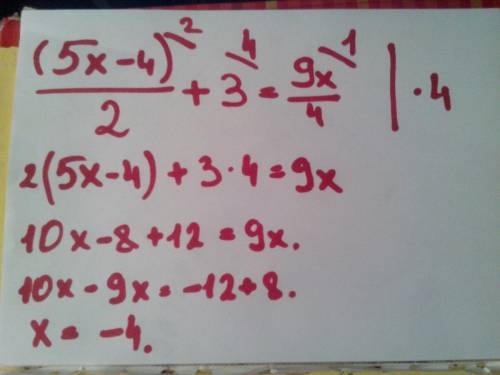 (5x-4)\²/2 + 3\⁴ = 9x\¹/4 | · 4
2(5x-4) + 3·4 = 9x
10x - 8 + 12 = 9x.
10x - 9x = -12 + 8.
x = -4.